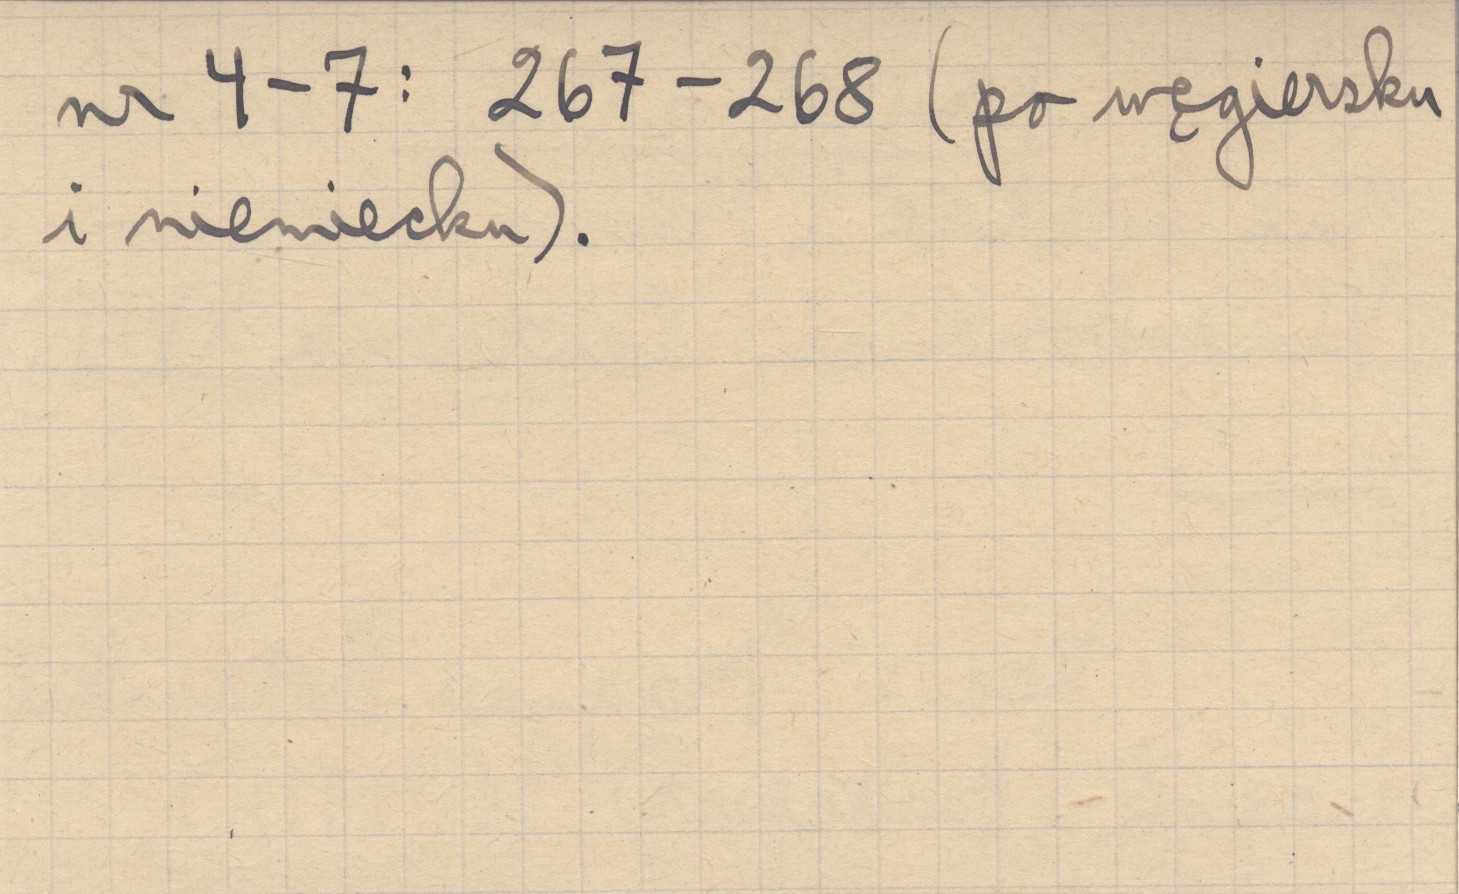 nr 4-7: 267-268 (po węgiersku
i niemiecku).